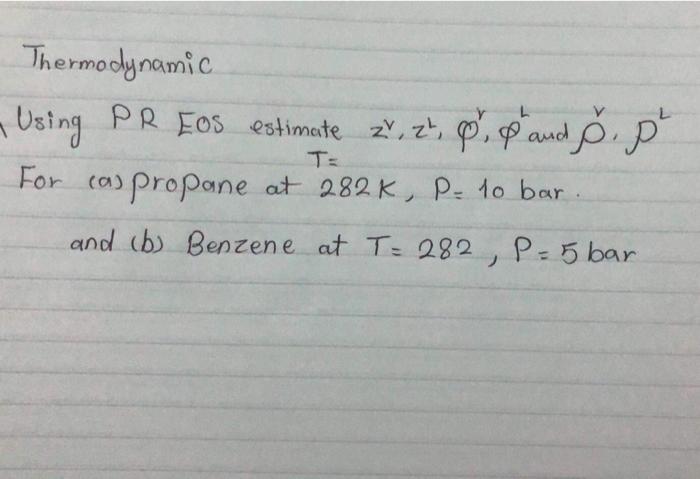 Thermodynamic
Using PR EOS estimate zᵛ, zᴸ, φᵛ, φᴸ and ρᵛ, ρᴸ
T=
For (a) propane at 282K, P= 10 bar.
and (b) Benzene at T= 282, P= 5 bar